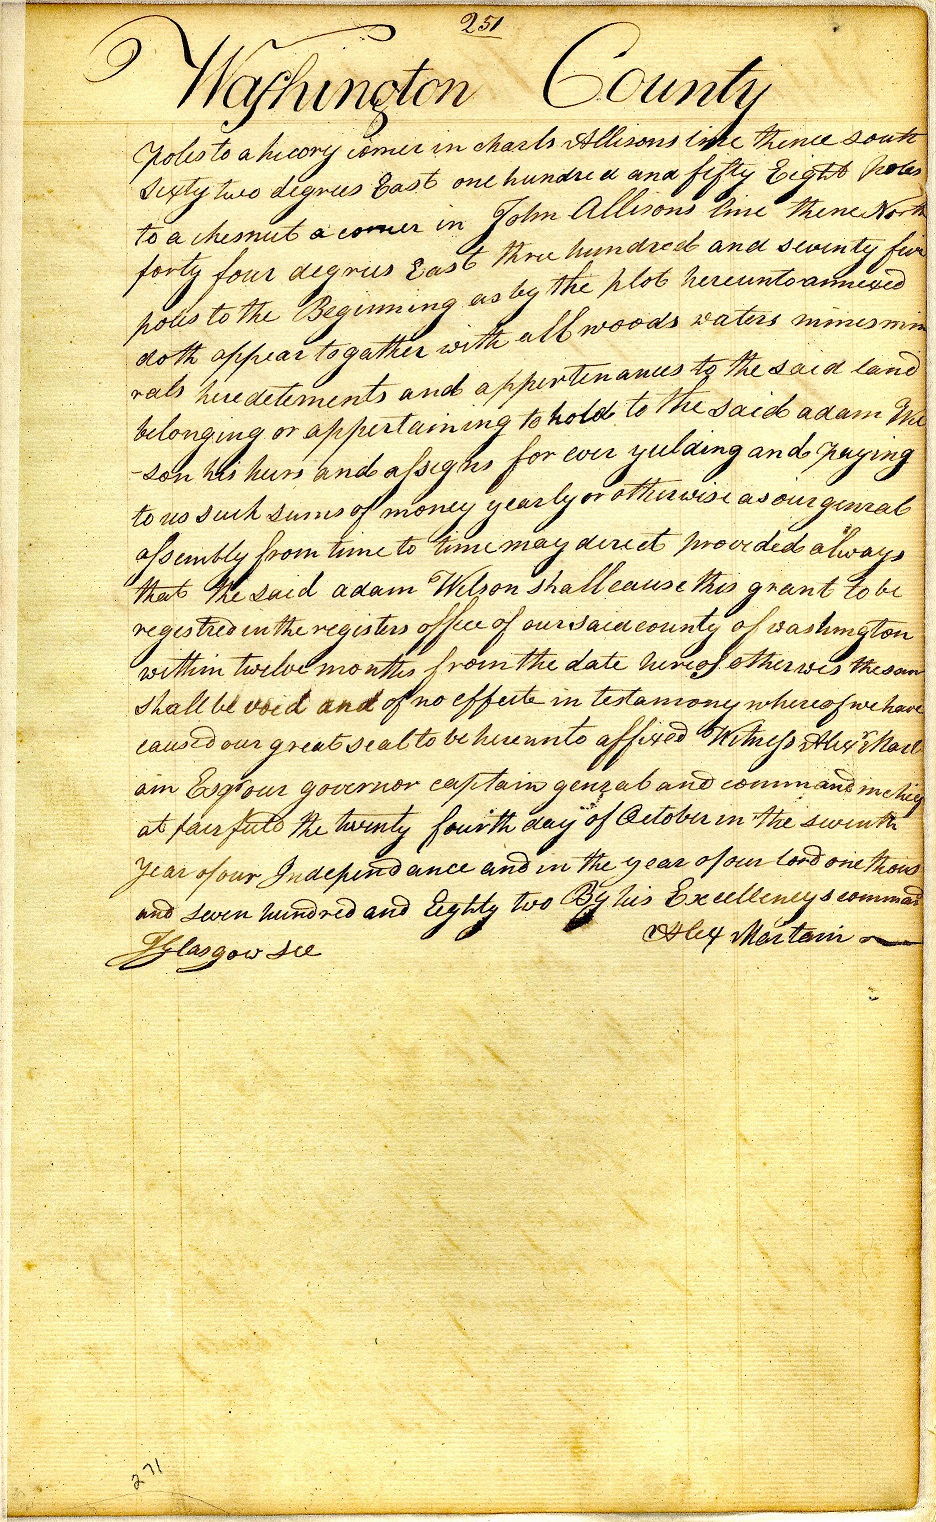 251
Washington County
poles to a hicory corner in charls Allisons line thence south
sixty two degrees East one hundred and fifty Eight poles
to a chesnut a corner in John Allisons line thence North
forty four degrees East three hundred and seventy five
poles to the Beginning as by the plot hereunto annexed
doth appear togather with all woods waters mines min
rals heredetements and appertenances to the said land
belonging or appertaining to hold to the said adam Wil
-son his heirs and assigns for ever yeilding and paying
to us such sums of money yearly or otherwise as our genral
assembly from time to time may derect provided always
that the said adam Wilson shall cause this grant to be
registred in the registers office of our said county of washington
within twelve months from the date hereof otherwis the sam
shall be void and of no effecte in testamony whereof we have
caused our great seal to be hereunto affixed Witness Alexr Mart
ain Esqr our governor captain genral and command in chief
at fairfield the twenty fourth day of October in the seventh
year of our Independance and in the year of our lord one thous
and seven hundred and Eighty two By his Excellencys command
J Glasgow sec Alex Martain
271